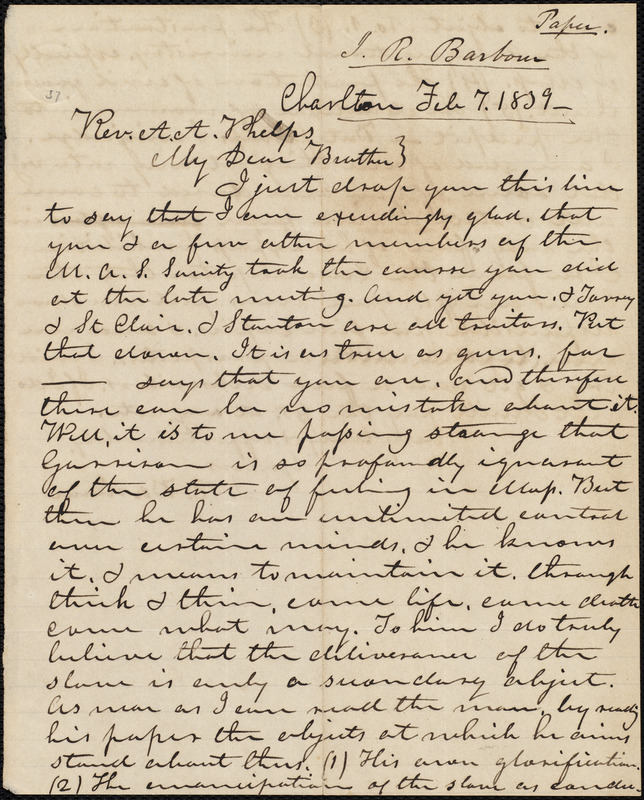 Paper.
I. R. Barbour
37
Charlton Feb 7. 1839—
Rev. A. A. Phelps
My Dear Brother}
I just drop you this line
to say that I am exceedingly glad, that
you & a few other members of the
M. A. S. Society took the course you did
at the late meeting. And yet you, & Torrey
& St Clair, & Stanton are all traitors. Put
that down. It is as true as guns, for
—— says that you are, and therefore
there can be no mistake about it.
Well, it is to me passing strange that
Garrison is so profoundly ignorant
of the state of feeling in Mass. But
then he has an unlimited control
over certain minds, & he knows
it, & means to maintain it, through
thick & thin, come life, come death
come what may. To him I do truly
believe that the deliverance of the
slave is only a secondary object.
As near as I can read the man, by readg
his paper the objects at which he aims
stand about thus. (1) His own glorification.
(2) The emancipation of the slave as condu-